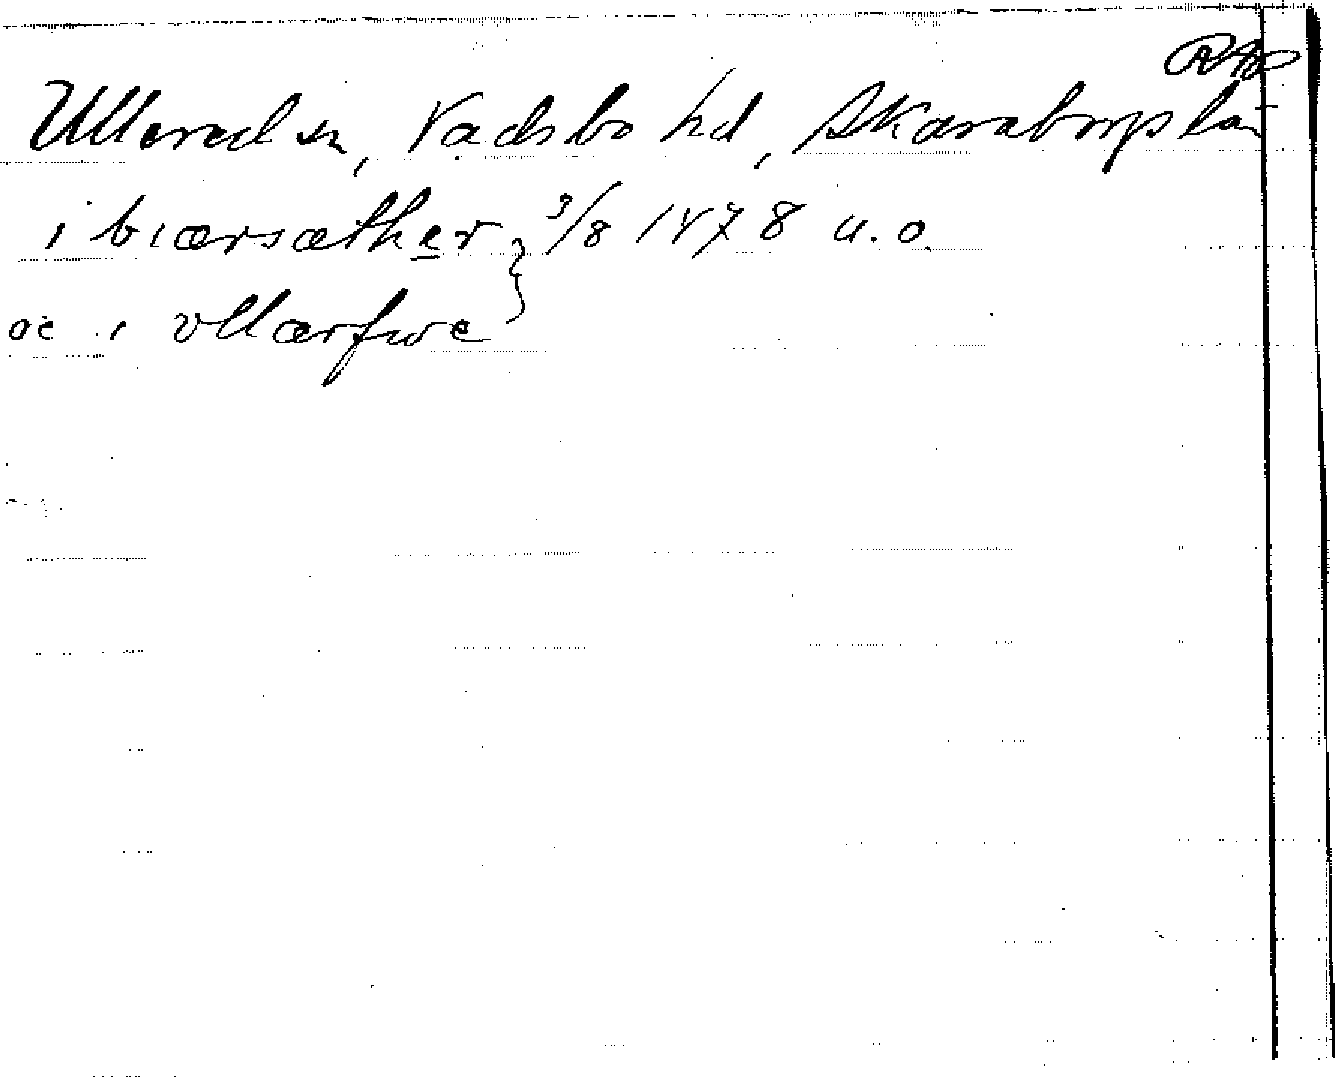 RAp
Ullered sn, Vadsbo hd, Skaraborgs län
i biærsæther } 3/8 1478 u. o.
oc i vllærfwe